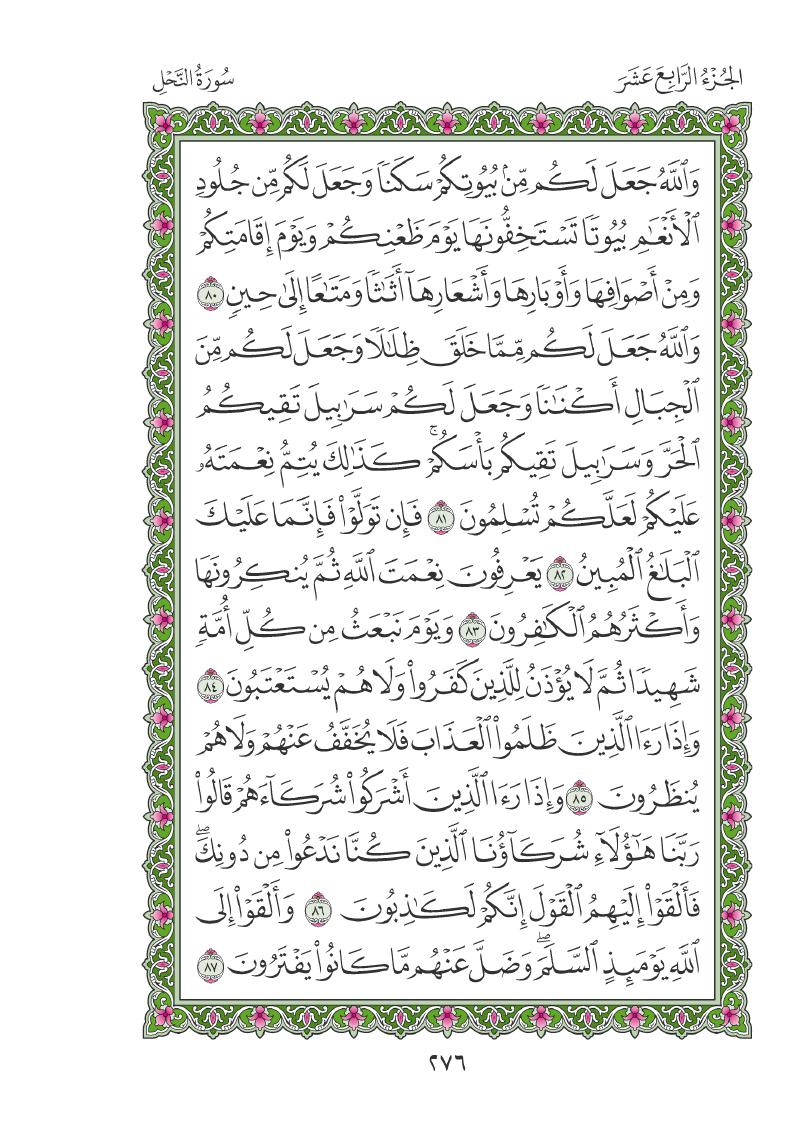 الجُزْءُ الرَّابِعَ عَشَرَ
سُورَةُ النَّحْلِ
وَٱللَّهُ جَعَلَ لَكُم مِّنۢ بُيُوتِكُمْ سَكَنٗا وَجَعَلَ لَكُم مِّن جُلُودِ
ٱلْأَنْعَٰمِ بُيُوتٗا تَسْتَخِفُّونَهَا يَوْمَ ظَعْنِكُمْ وَيَوْمَ إِقَامَتِكُمْ
وَمِنْ أَصْوَافِهَا وَأَوْبَارِهَا وَأَشْعَارِهَآ أَثَٰثٗا وَمَتَٰعًا إِلَىٰ حِينٖ ٨٠
وَٱللَّهُ جَعَلَ لَكُم مِّمَّا خَلَقَ ظِلَٰلٗا وَجَعَلَ لَكُم مِّنَ
ٱلْجِبَالِ أَكْنَٰنٗا وَجَعَلَ لَكُمْ سَرَٰبِيلَ تَقِيكُمُ
ٱلْحَرَّ وَسَرَٰبِيلَ تَقِيكُم بَأْسَكُمْۚ كَذَٰلِكَ يُتِمُّ نِعْمَتَهُۥ
عَلَيْكُمْ لَعَلَّكُمْ تُسْلِمُونَ ٨١ فَإِن تَوَلَّوْا۟ فَإِنَّمَا عَلَيْكَ
ٱلْبَلَٰغُ ٱلْمُبِينُ ٨٢ يَعْرِفُونَ نِعْمَتَ ٱللَّهِ ثُمَّ يُنكِرُونَهَا
وَأَكْثَرُهُمُ ٱلْكَٰفِرُونَ ٨٣ وَيَوْمَ نَبْعَثُ مِن كُلِّ أُمَّةٖ
شَهِيدٗا ثُمَّ لَا يُؤْذَنُ لِلَّذِينَ كَفَرُوا۟ وَلَا هُمْ يُسْتَعْتَبُونَ ٨٤
وَإِذَا رَءَا ٱلَّذِينَ ظَلَمُوا۟ ٱلْعَذَابَ فَلَا يُخَفَّفُ عَنْهُمْ وَلَا هُمْ
يُنظَرُونَ ٨٥ وَإِذَا رَءَا ٱلَّذِينَ أَشْرَكُوا۟ شُرَكَآءَهُمْ قَالُوا۟
رَبَّنَا هَٰٓؤُلَآءِ شُرَكَآؤُنَا ٱلَّذِينَ كُنَّا نَدْعُوا۟ مِن دُونِكَۖ
فَأَلْقَوْا۟ إِلَيْهِمُ ٱلْقَوْلَ إِنَّكُمْ لَكَٰذِبُونَ ٨٦ وَأَلْقَوْا۟ إِلَى
ٱللَّهِ يَوْمَئِذٍ ٱلسَّلَمَۖ وَضَلَّ عَنْهُم مَّا كَانُوا۟ يَفْتَرُونَ ٨٧
٢٧٦